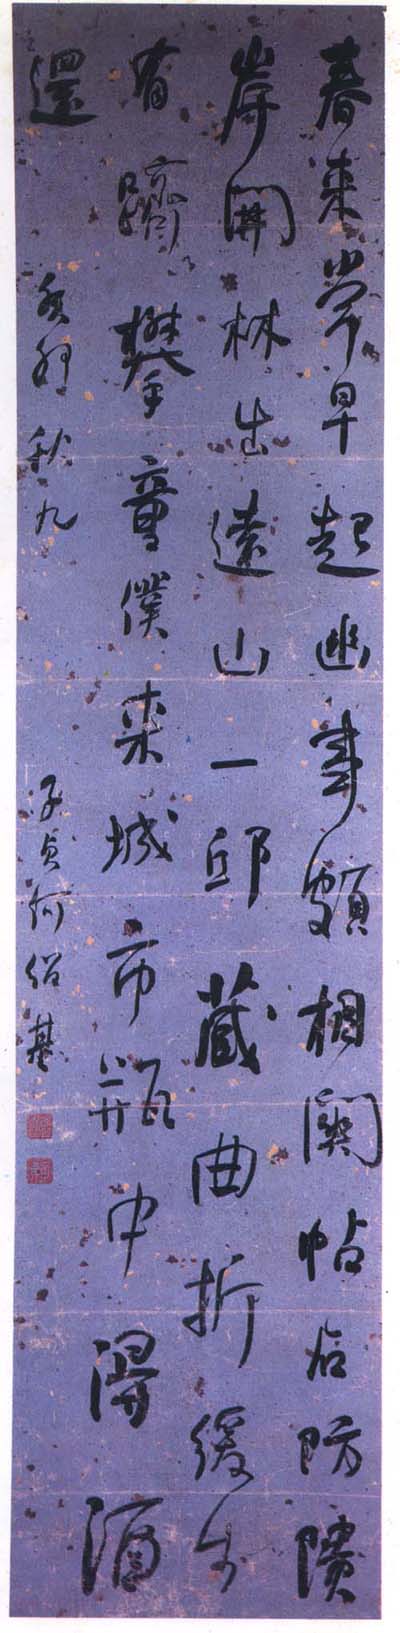 春来常早起幽事颇相關帖石防隤
岸開林出遠山一邱藏曲折緩步
有躋攀童僕来城市瓶中得酒
還
癸卯秋九
子貞何紹基